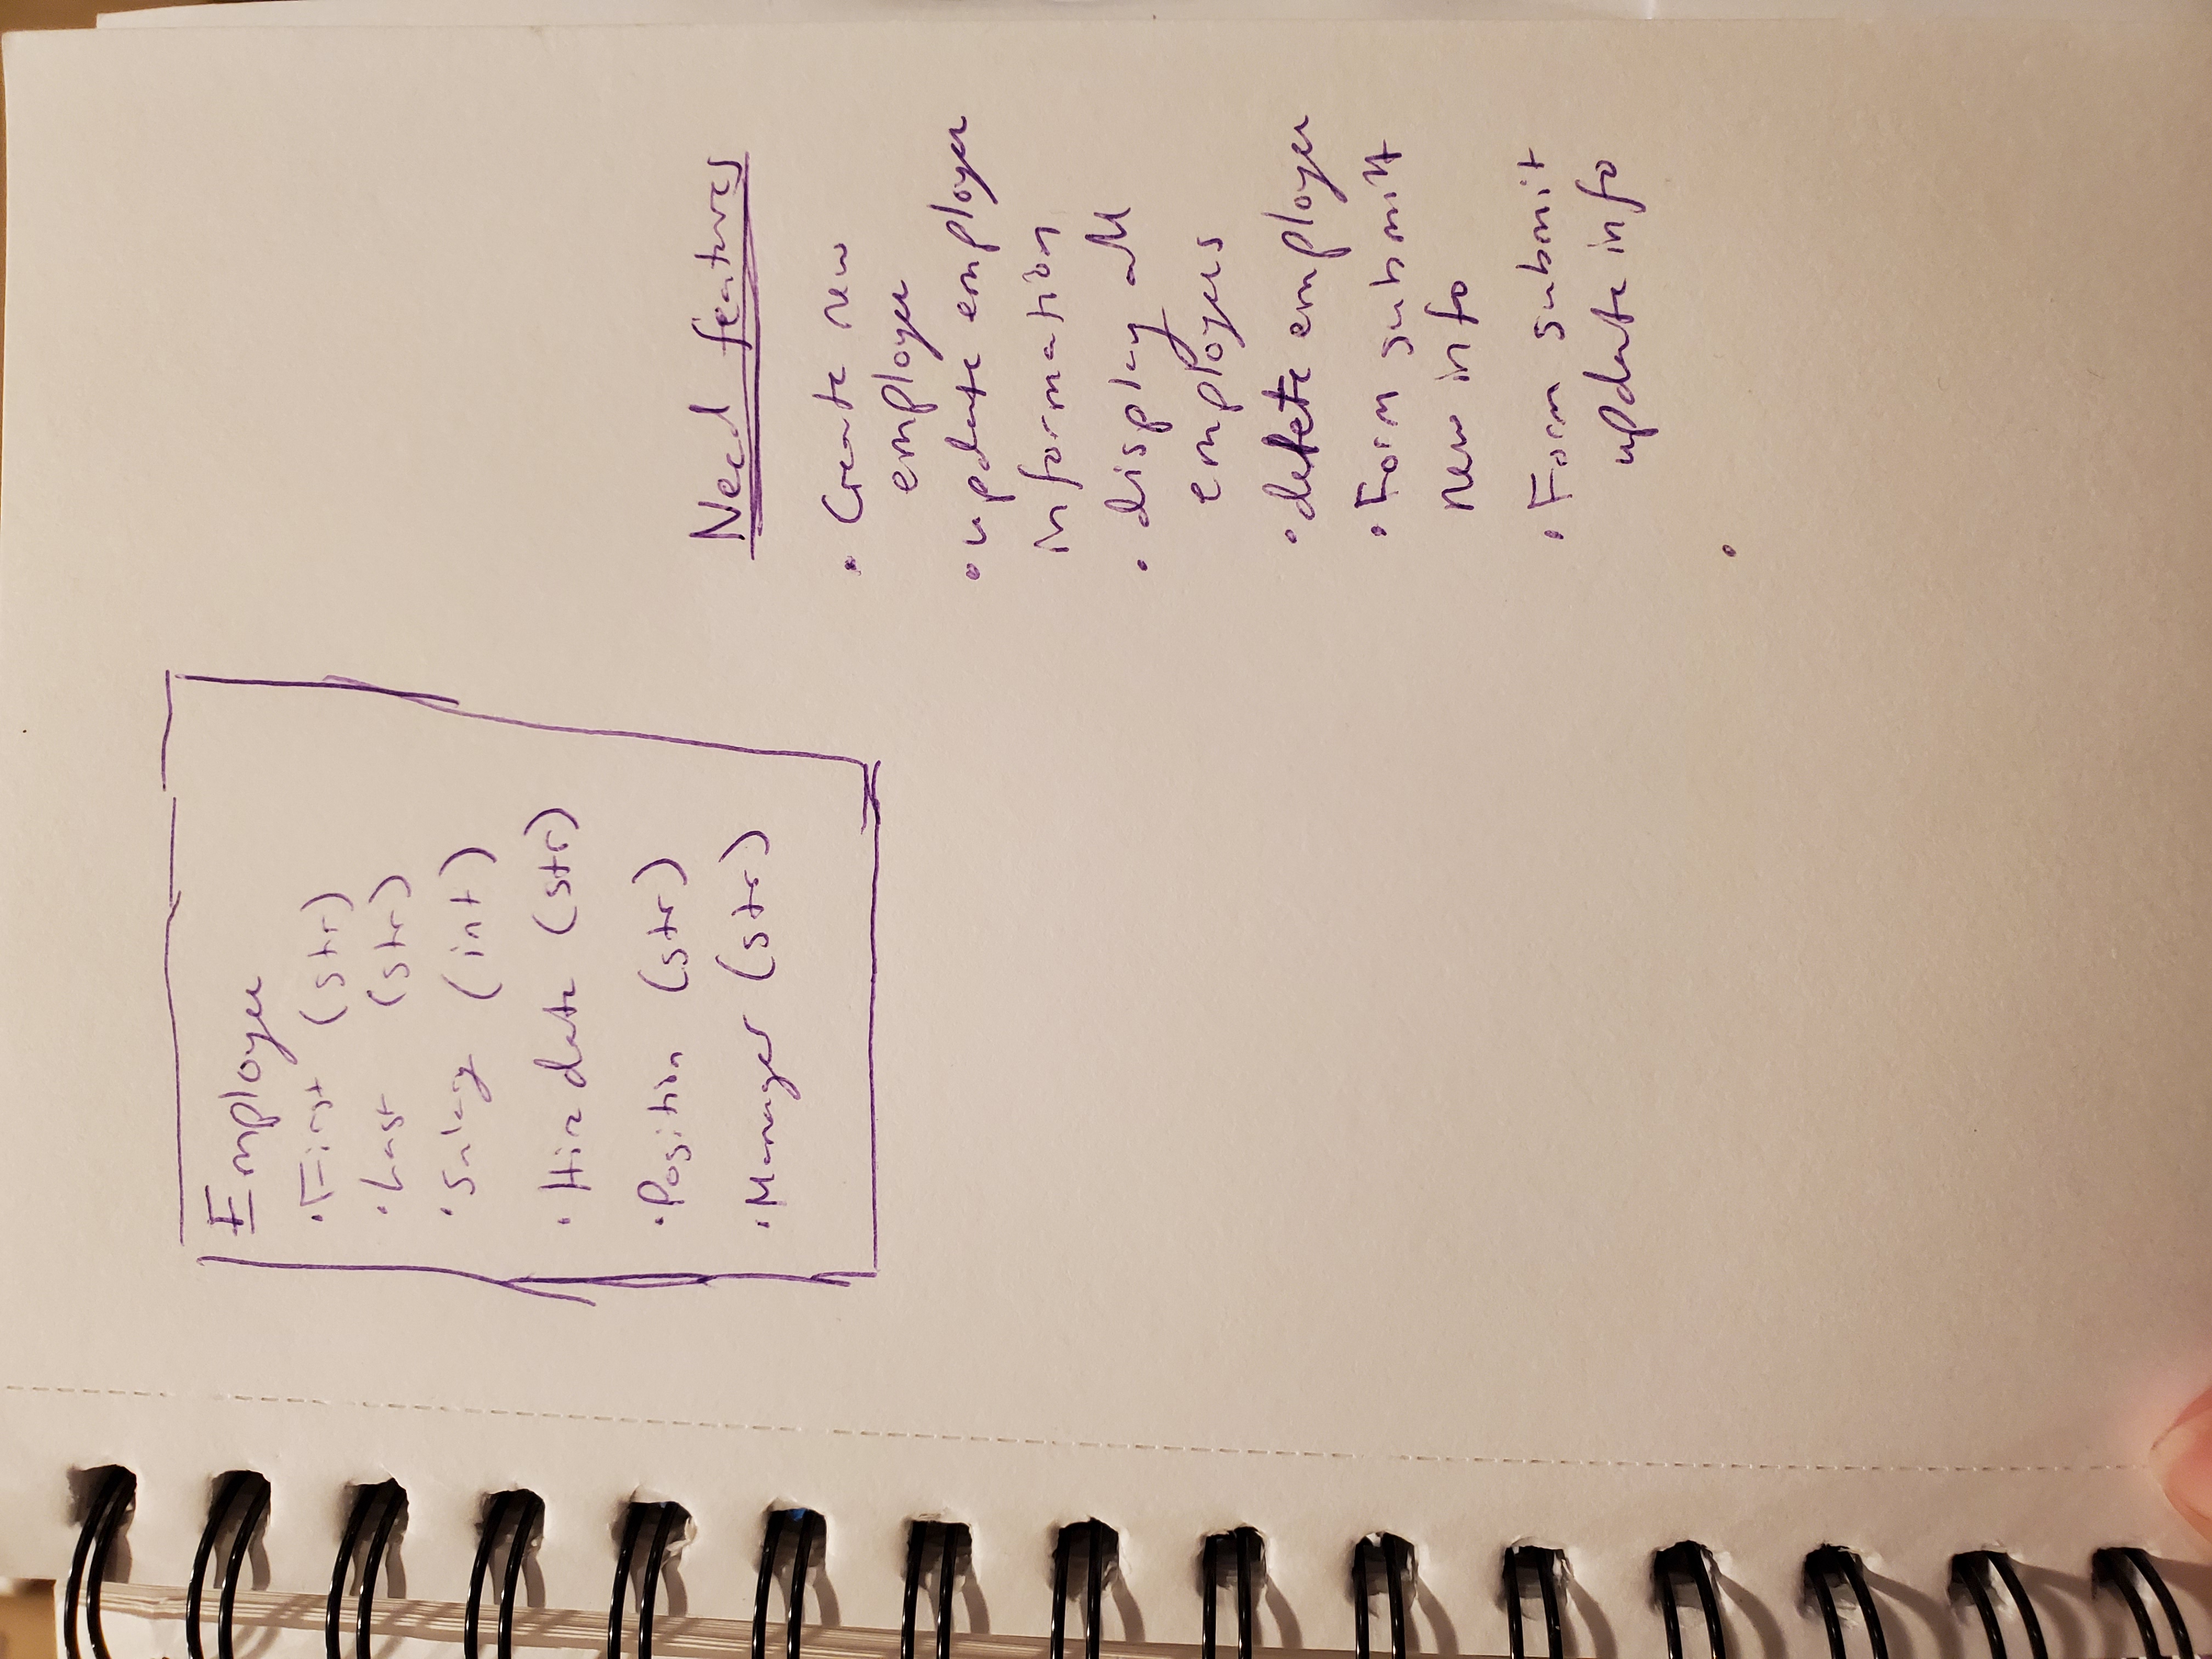 Employee
• First (str)
• Last (str)
• Salary (int)
• Hire date (str)
• Position (str)
• Manager (str)
Need features
• Create new
employee
• update employee
information
• display all
employees
• delete employee
• Form submitt
new info
• Form submit
update info
•